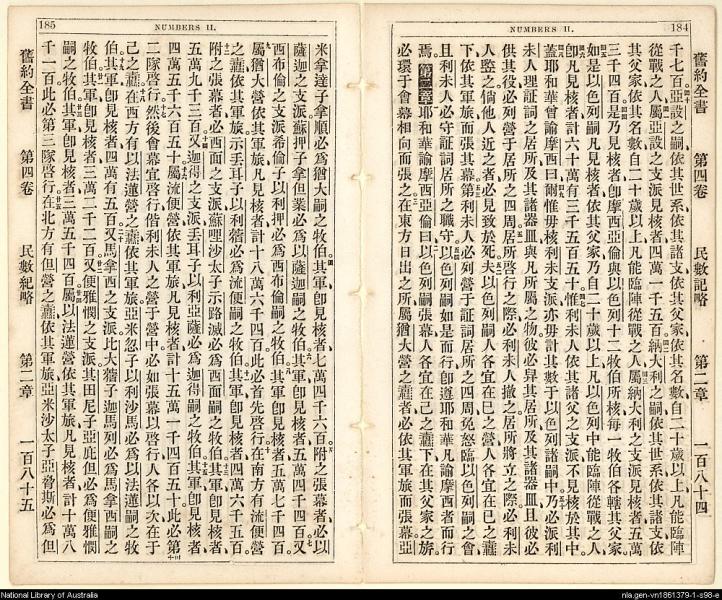 NUMBERS II.
184
舊約全書 第四卷 民數紀略 第二章 一百八十四
千七百亞設之嗣依其世系依其諸支依其父家依其名數自二十歲以上凡能臨陣
從戰之人屬亞設之支派見核者四萬一千五百納大利之嗣依其世系依其諸支依
其父家依其名數自二十歲以上凡能臨陣從戰之人屬納大利之支派見核者五萬
三千四百是乃見核者卽摩西亞倫與以色列十二牧伯所核每一牧伯各轄其父家
如是以色列嗣凡見核者依其父家乃自二十歲以上凡以色列中能臨陣從戰之人
卽凡見核者計六十萬有三千五百五十惟利未人依其諸父之支派不見核於其中
蓋耶和華曾諭摩西曰爾惟毋核利未支派亦毋計其數于以色列諸嗣中乃必派利
未人理証詞之居所及其諸器皿與凡所屬之物彼必舁其居所及其諸器皿且彼必
供其役必列營于居所之四周居所啓行之際必利未人撤之居所將立之際必利未
人竪之倘他人近之者必見致於死夫以色列嗣人各宜在已之營人各宜在已之纛
下依其軍旅而張其幕第利未人必列營于証詞居所之四周免怒臨以色列嗣之會
且利未人必守証詞居所之職守以色列嗣如是而行卽遵耶和華凡諭摩西者而行
焉第二章耶和華諭摩西亞倫曰以色列嗣張幕人各宜在己之纛下在其父家之旂
必環于會幕相向而張之在東方日出之所屬猶大營之纛者必依其軍旅而張幕亞
NUMBERS II.
185
米拿達子拿順必爲猶大嗣之牧伯其軍卽見核者七萬四千六百附之張幕者必以
薩迦之支派蘇押子拿但業必爲以薩迦嗣之牧伯其軍卽見核者五萬四千四百又
西布倫之支派希倫子以利押必爲西布倫嗣之牧伯其軍卽見核者五萬七千四百
屬猶大營依其軍旅凡見核者計十八萬六千四百此必首先啓行在南方有流便營
之纛依其軍旅示丟耳子以利蓿必爲流便嗣之牧伯其軍卽見核者四萬六千五百
附之張幕者必西面之支派蘇哩沙太子示路滅必爲西面嗣之牧伯其軍卽見核者
五萬九千三百又迦得之支派丟耳子以利亞薩必爲迦得嗣之牧伯其軍卽見核者
四萬五千六百五十屬流便營依其軍旅凡見核者計十五萬一千四百五十此必第
二隊啓行然後會幕宜啓行偕利未人之營于營中必如張幕以啓行人各以次在于
己之纛在西方有以法蓮營之纛依其軍旅亞米忽子以利沙馬必爲以法蓮嗣之牧
伯其軍卽見核者四萬有五百又馬拿西之支派比大蓿子迦馬列必爲馬拿西嗣之
牧伯其軍卽見核者三萬二千二百又便雅憫之支派其田尼子亞庇但必爲便雅憫
嗣之牧伯其軍卽見核者三萬五千四百屬以法蓮營依其軍旅凡見核者計十萬八
千一百此必第三隊啓行在北方有但營之纛依其軍旅亞米沙太子亞脅斯必爲但
舊約全書 第四卷 民數紀略 第二章 一百八十五
National Library of Australia
nla.gen-vn1861379-1-s98-e